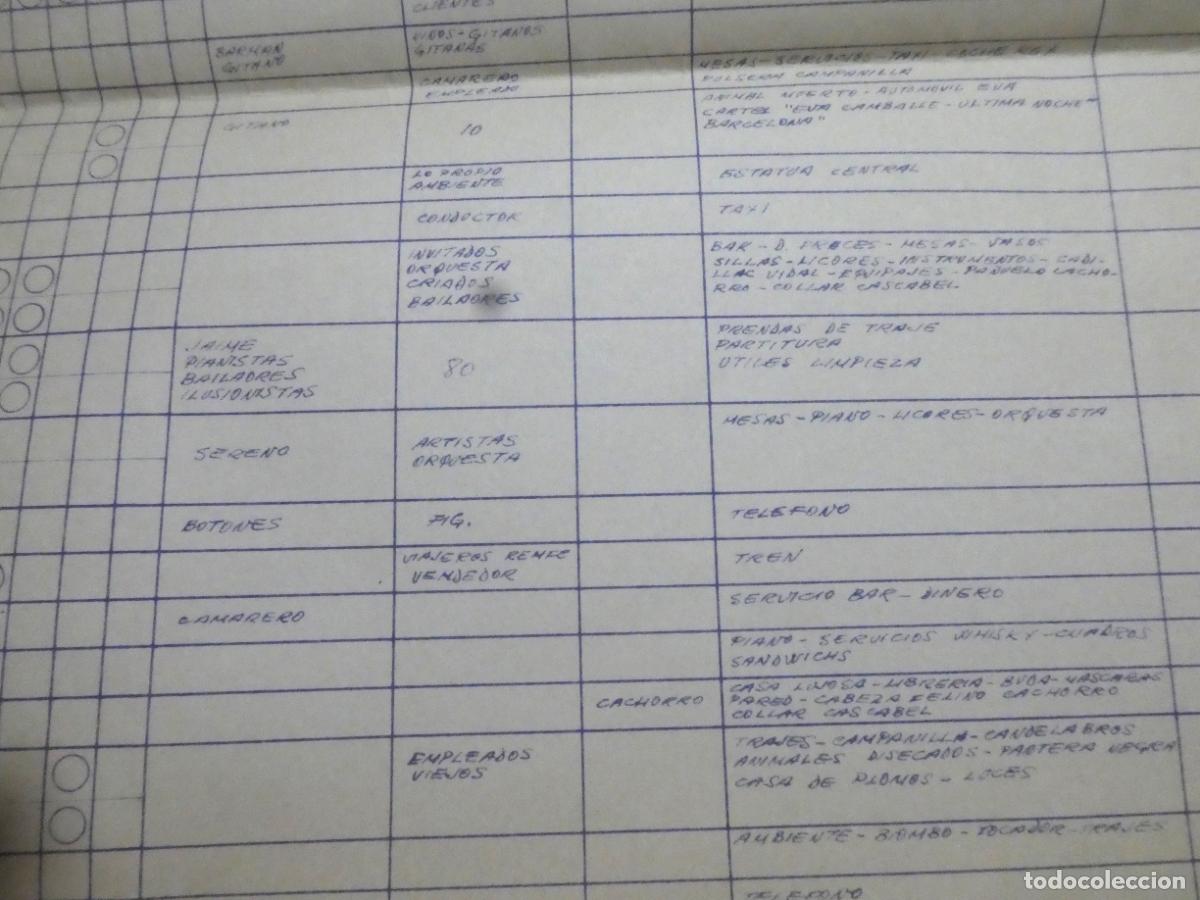 CLIENTES
BARMAN
GITANO
GITANOS
GITANAS
MESAS - SERVICIOS - TAXI - COCHE
CAMPANILLA
CAMARERO
EMPLEADO
ANIMAL MUERTO - AUTOMOVIL EVA
CARTEL "EVA CAMBALLE - ULTIMA NOCHE
BARCELONA"
GITANO
10
LO PROPIO
AMBIENTE
ESTATUA CENTRAL
CONDUCTOR
TAXI
INVITADOS
ORQUESTA
CRIADOS
BAILADRES
BAR - D. PRECES - MESAS - VASOS
SILLAS - LICORES - INSTRUMENTOS - CADI-
LLAC VIDAL - EQUIPAJES - PAÑUELO CACHO-
RRO - COLLAR CASCABEL
JAIME
PIANISTAS
BAILADRES
ILUSIONISTAS
80
PRENDAS DE TRAJE
PARTITURA
UTILES LIMPIEZA
SERENO
ARTISTAS
ORQUESTA
MESAS - PIANO - LICORES - ORQUESTA
BOTONES
FIG.
TELEFONO
VIAJEROS RENFE
VENDEDOR
TREN
CAMARERO
SERVICIO BAR - DINERO
PIANO - SERVICIOS WHISKY - CUADROS
SANDWICHS
CACHORRO
CASA LUJOSA - LIBRERIA - BUDA - MASCARAS
PARED - CABEZA FELINO CACHORRO
COLLAR CASCABEL
EMPLEADOS
VIEJOS
TRAJES - CAMPANILLA - CANDELABROS
ANIMALES DISECADOS - PANTERA NEGRA
CASA DE PLOMOS - LUCES
AMBIENTE - BIOMBO - TOCADOR - TRAJES
TELEFONO
todocoleccion